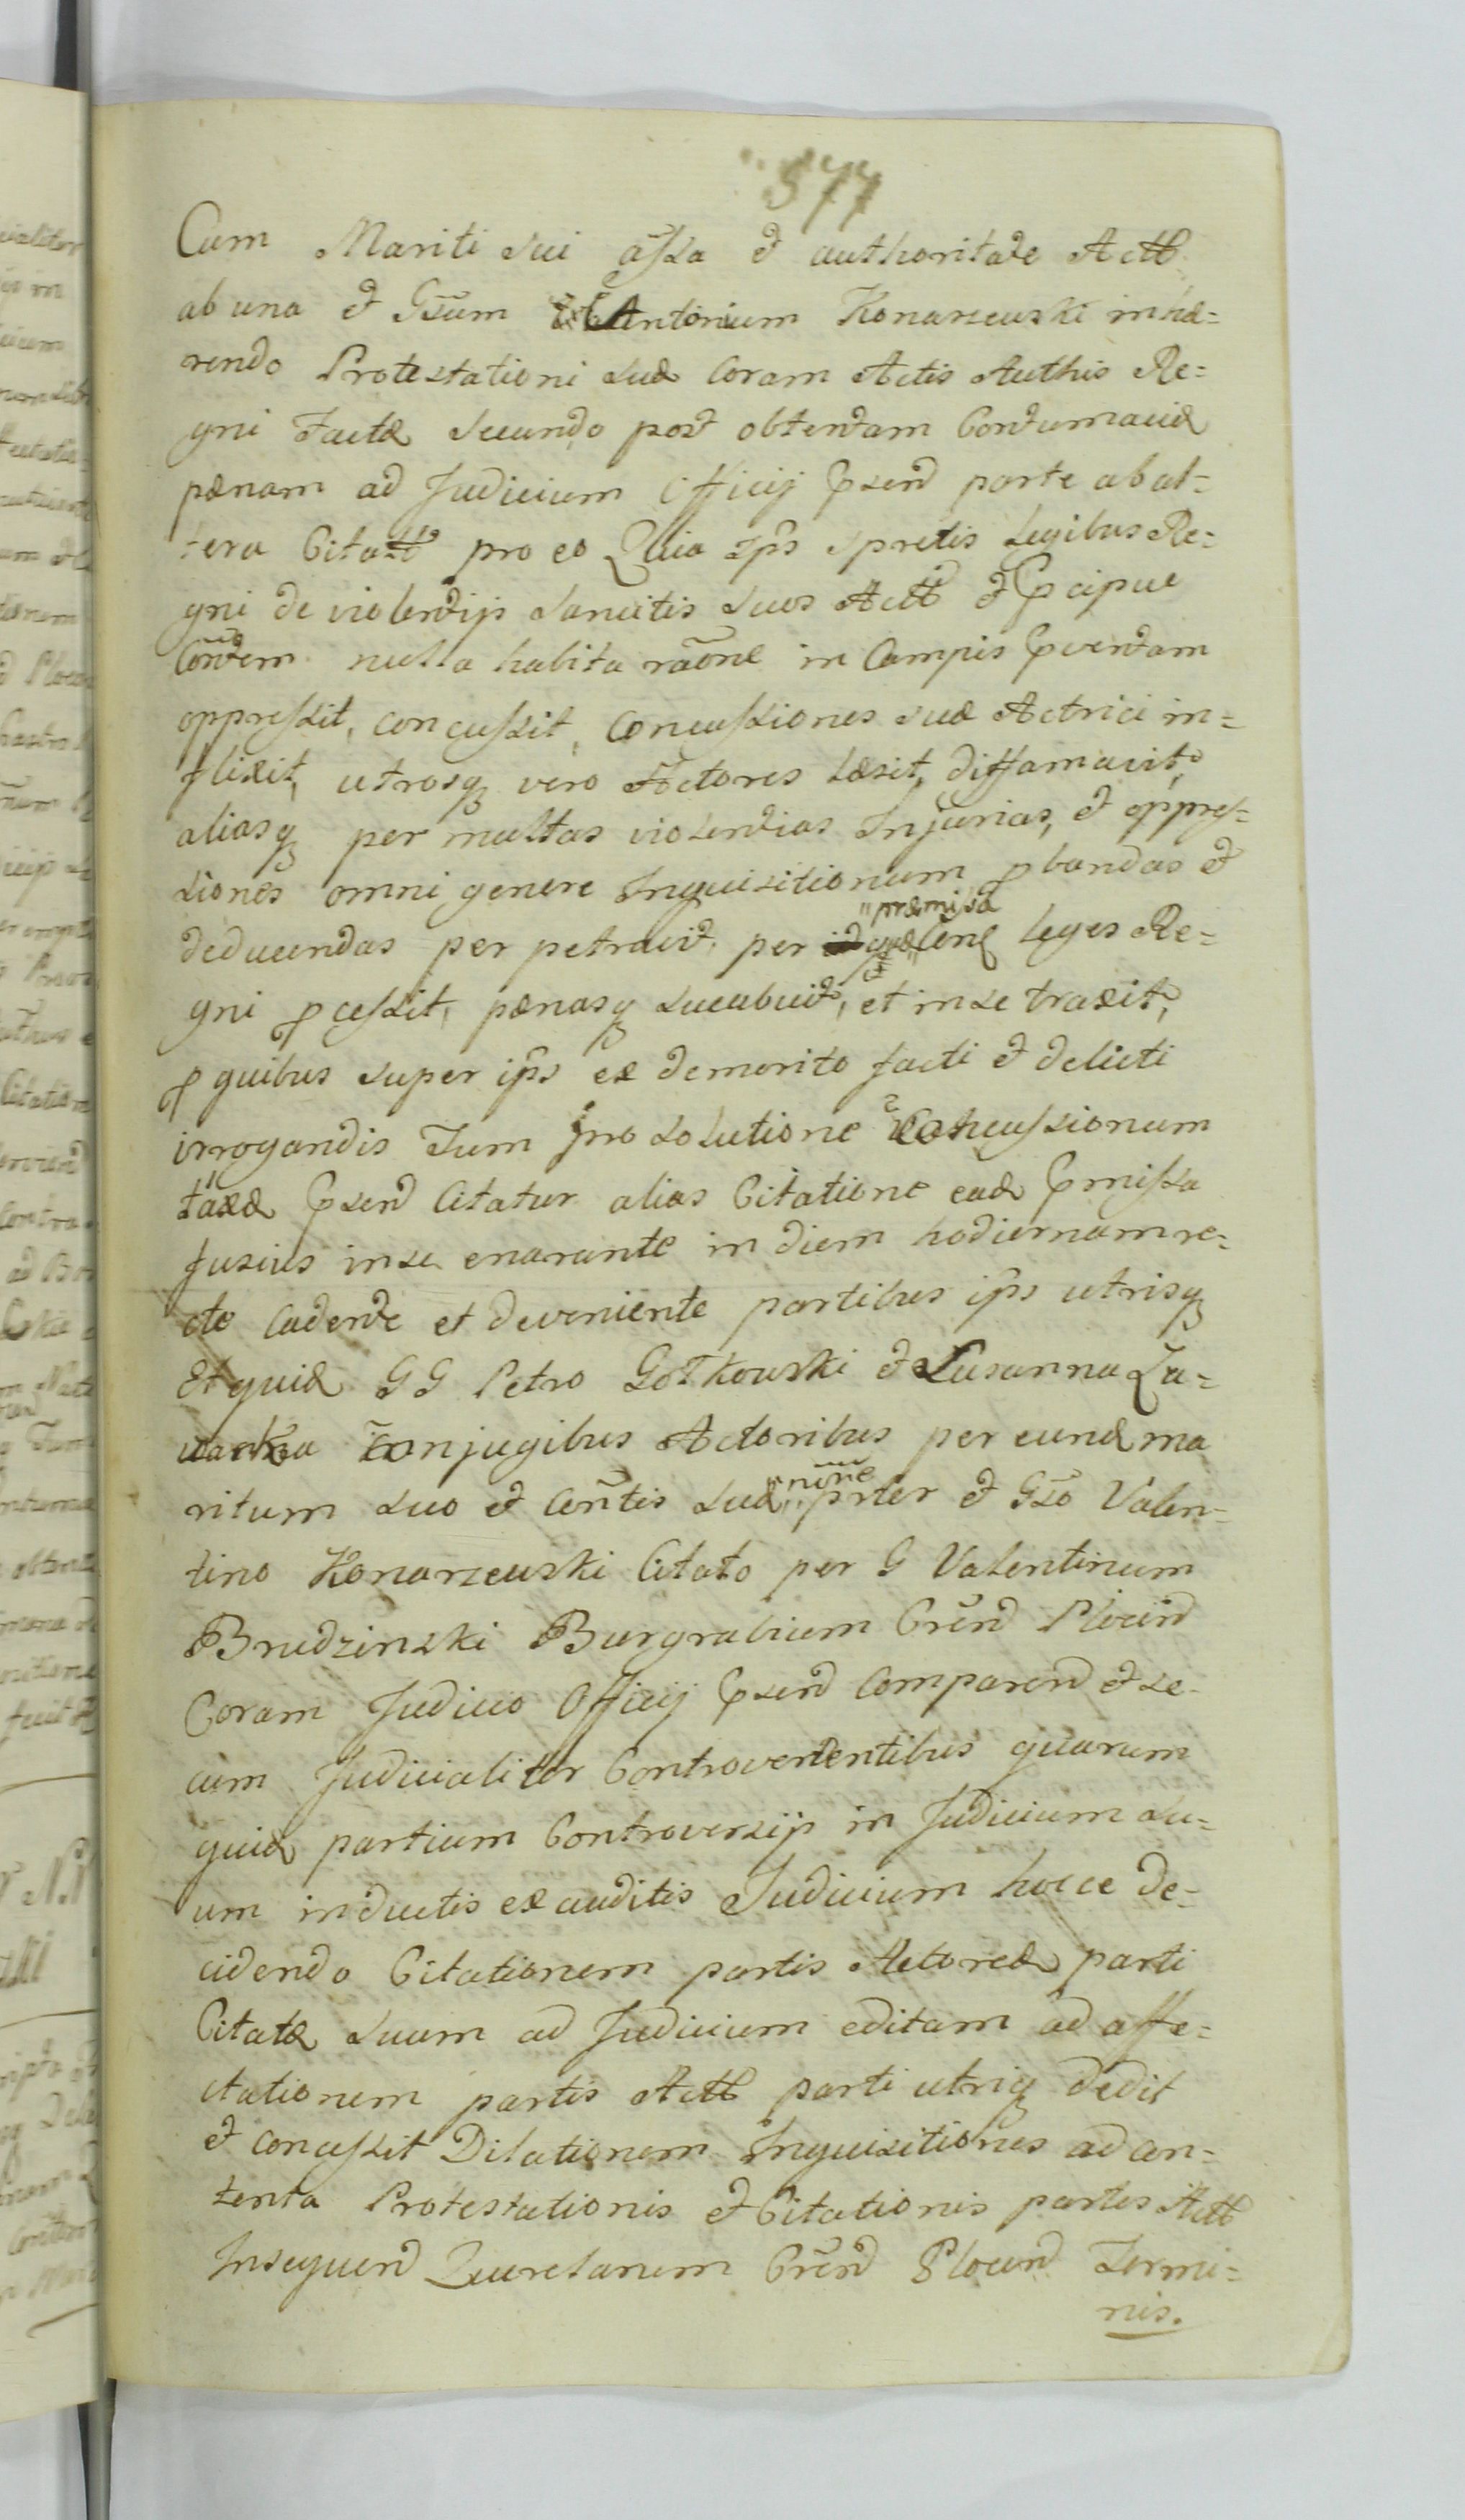 577
Cum Mariti sui assa et authoritate Actt
ab una et Gsum Antonium Konarzewski inhæ=
rendo Protestationi suæ Coram Actis Authis Re=
gni Factæ secundo post obtentam Contumaciæ
pænam ad Judicium Officij Psend parte ab al=
tera Citatt pro eo Quia ips spretis Legibus Re=
gni de violentijs sancitis suos Actt et Pcipue
Contem nulla habita raone in Campis Pventam
oppressit, concussit, Concussiones suæ Actrici in=
flixit, utrosq vero Actores læsit, diffamavit,
aliasq per multas violentias Injurias, et oppres=
siones omni genere Inquisitionum pbandas et
"præmisa
deducendas per petravit per quæ Cone Leges Re=
gni pcessit, pænasq sucubuit, et in se traxit,
p quibus super ips ex demerito facti et delicti
irrogandis Tum pro solutione Concussionum
taxæ Psend Citatur alias Citatione eadæ Pmissa
fusius in se enarante in diem hodiernam re=
cte Cadente et deveniente partibus ips utrisq
Et quidæ GG Petro Gotkowski et Susanna Za=
conjugibus Actoribus per eundæ ma
"none
ritum suo et Contis suæ " prter et Gso Valen=
tino Konarzewski Citato per G Valentinum
Brudzinski Burgrabium Crend Plocend
Coram Judicio Officij Psend Comparend et se=
cum Judicialiter Controvertentibus quarum
quidæ partium Controversijs in Judicium su=
um inductis exauditis Judicium hocce de=
cidendo Citationem partis Actoreæ parti
Citatæ suum ad Judicium editam ad affe=
ctationem partis Actt parti utriq dedit
et concessit Dilationem Inquisitiones ad con=
tenta Protestationis et Citationis partis Actt
Insequend Querelarum Crend Plocend Termi=
nis.